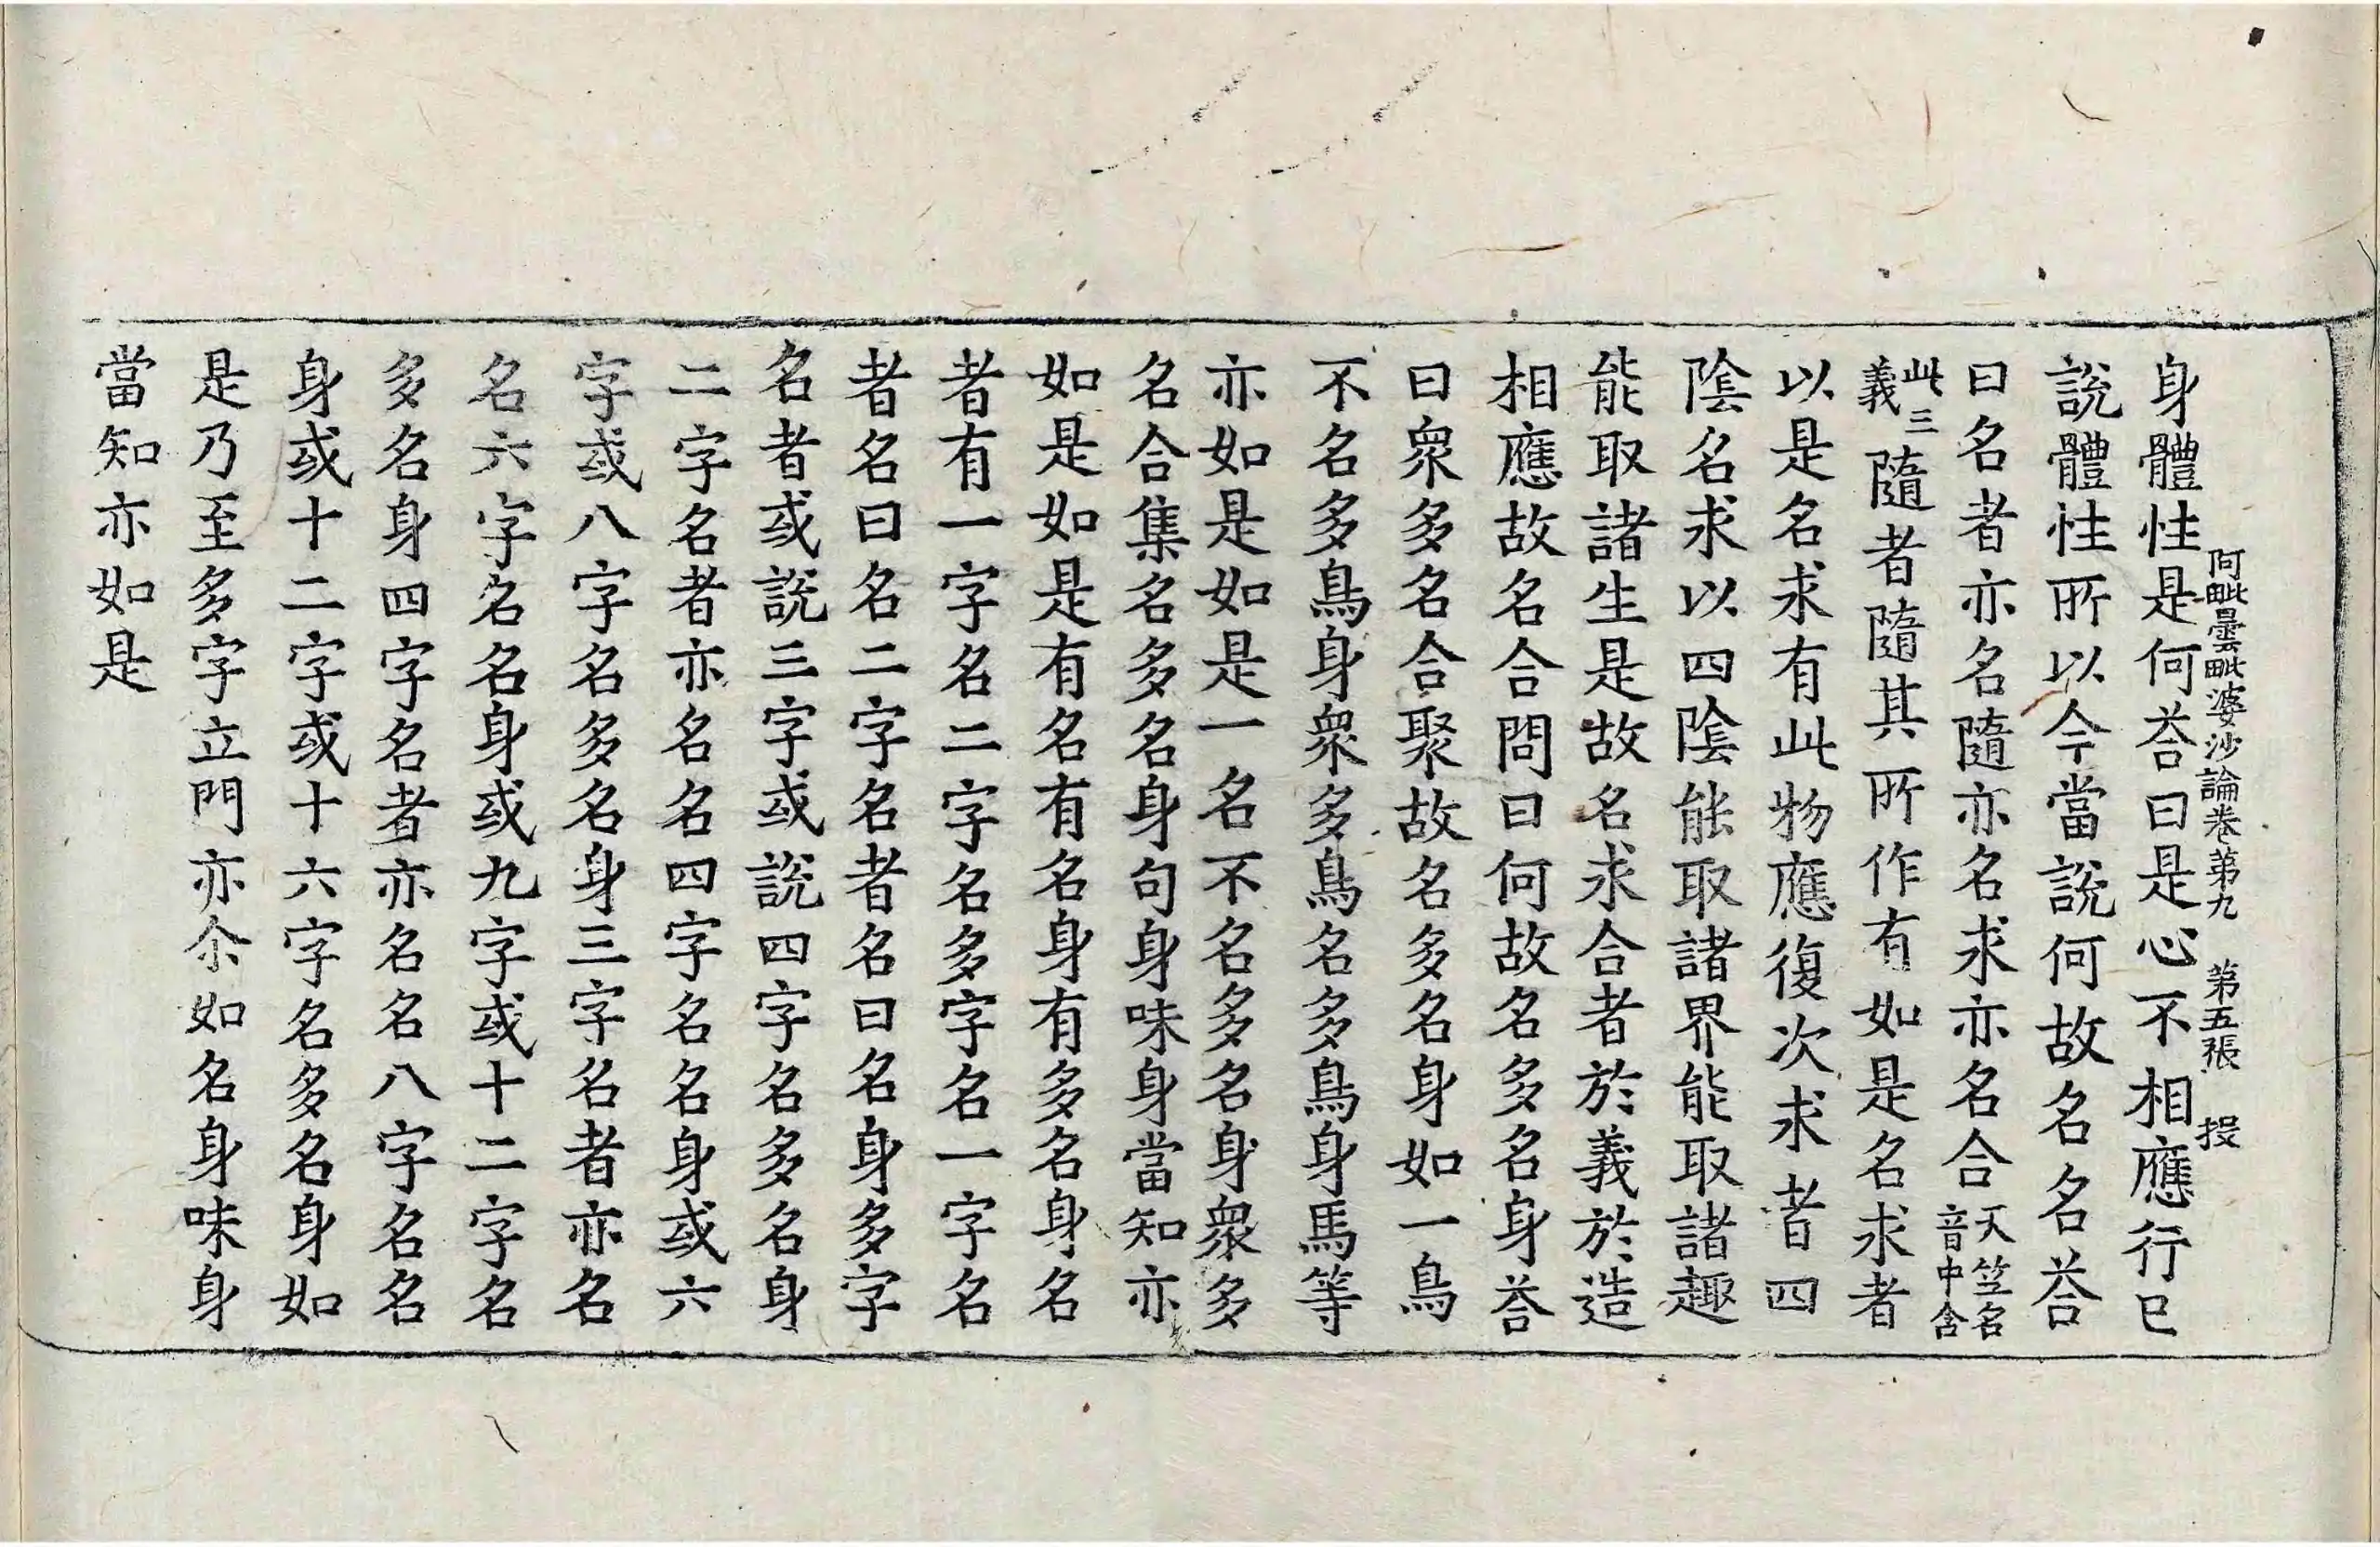 阿毗曇毗婆沙論卷第九　第五張　投
身體性是何荅曰是心不相應行已
說體性所以今當說何故名名荅
曰名者亦名隨亦名求亦名合天竺名音中含
此三義隨者隨其所作有如是名求者
以是名求有此物應復次求者四
陰名求以四陰能取諸界能取諸趣
能取諸生是故名求合者於義於造
相應故名合問曰何故名多名身荅
曰衆多名合聚故名多名身如一鳥
不名多鳥身衆多鳥名多鳥身馬等
亦如是如是一名不名多名身衆多
名合集名多名身句身味身當知亦
如是如是有名有名身有多名身名
者有一字名二字名多字名一字名
者名曰名二字名者名曰名身多字
名者或說三字或說四字名多名身
二字名者亦名名四字名名身或六
字或八字名多名身三字名者亦名
名六字名名身或九字或十二字名
多名身四字名者亦名名八字名名
身或十二字或十六字名多名身如
是乃至多字立門亦尒如名身味身
當知亦如是